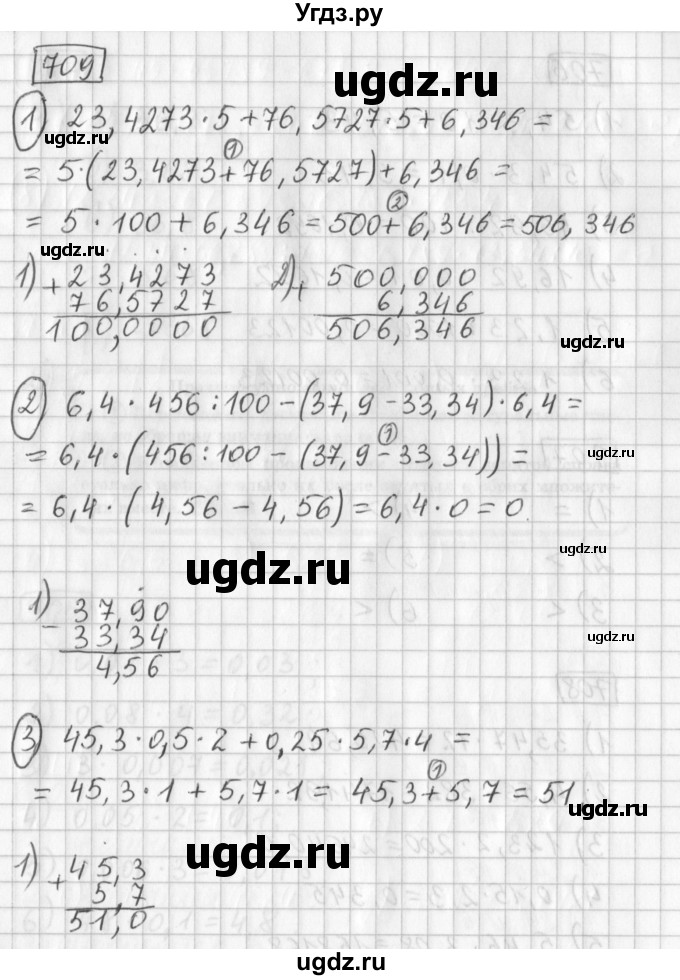 Угдз.ру
709
ugdz.ru
1) 23,4273·5+76,5727·5+6,346=
ugdz.ru
= 5·(23,4273+76,5727)+6,346=
①
= 5·100+6,346=500+6,346=506,346
②
ugdz.ru
1) +23,4273 2) + 500,000
76,5727 6,346
100,0000 506,346
ugdz.ru
2) 6,4·456:100-(37,9-33,34)·6,4=
= 6,4·(456:100-(37,9-33,34))=
①
ugdz.ru
= 6,4·(4,56-4,56)=6,4·0=0.
ugdz.ru
ugdz.ru
1) -37,90
33,34
4,56
ugdz.ru
3) 45,3·0,5·2+0,25·5,7·4=
= 45,3·1+5,7·1= 45,3+5,7=51,
①
ugdz.ru
ugdz.ru
1) +45,3
5,7
51,0
ugdz.ru